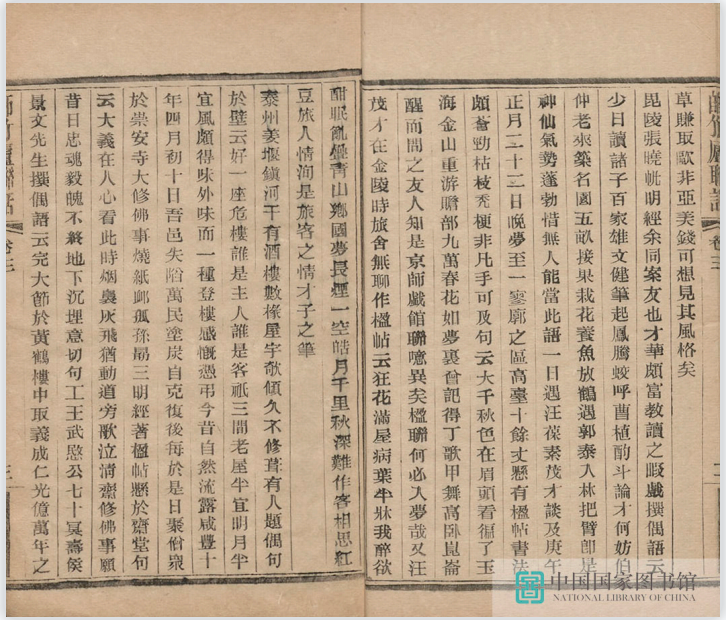 草賺取歐非亞美錢可想見其風格矣
毘陵張曉㠶明經余同案友也才華頗富教讀之暇戲撰偶語云
少日讀諸子百家雄文健筆起鳳騰蛟呼酋植酌斗論才何妨伯
仲老來築名園五畝接果栽花養魚放鶴遇郭泰入林把臂卽是
神仙氣勢蓬勃惜無人能當此語一日遇汪葆素茂才談及庚午
正月二十二日晚夢至一寥廓之區高臺十餘丈懸有楹帖書法
頗蒼勁枯枝禿梗非凡手可及句云大千秋色在眉頭看徧了玉
海金山重游瞻部九萬春花如夢裏曾記得丁歌甲舞高臥崑崙
醒而聞之友人知是京師戲館聯噫異矣楹聯何必入夢哉又汪
茂才在金陵時旅舍無聊作楹帖云狂花滿屋病葉半牀我醉欲
酣眠亂疊靑山鄉國夢長煙一空皓月千里秋深難作客相思紅
豆旅人情洵是旅客之情才子之筆
泰州姜堰鎭河干有酒樓數椽屋宇欹傾久不修葺有人題偶句
於壁云好一座危樓誰是主人誰是客祇三間老屋半宜明月半
宜風頗得味外味而一種登樓感慨憑弔今昔自然流露咸豐十
年四月初十日吾邑失陷萬民塗炭自克復後每於是日聚僧衆
於崇安寺大修佛事燒紙郵孤孫勗三明經著楹帖懸於齋堂句
云大義在人心看此時烟裊灰飛猶動道旁歌泣清齋修佛事願
昔日忠魂毅魄不終地下沉埋意切句工王武愍公七十冥壽侯
景文先生撰偶語云完大節於黃鶴樓中取義成仁光億萬年之
卷三
三
中国国家图书馆
NATIONAL LIBRARY OF CHINA